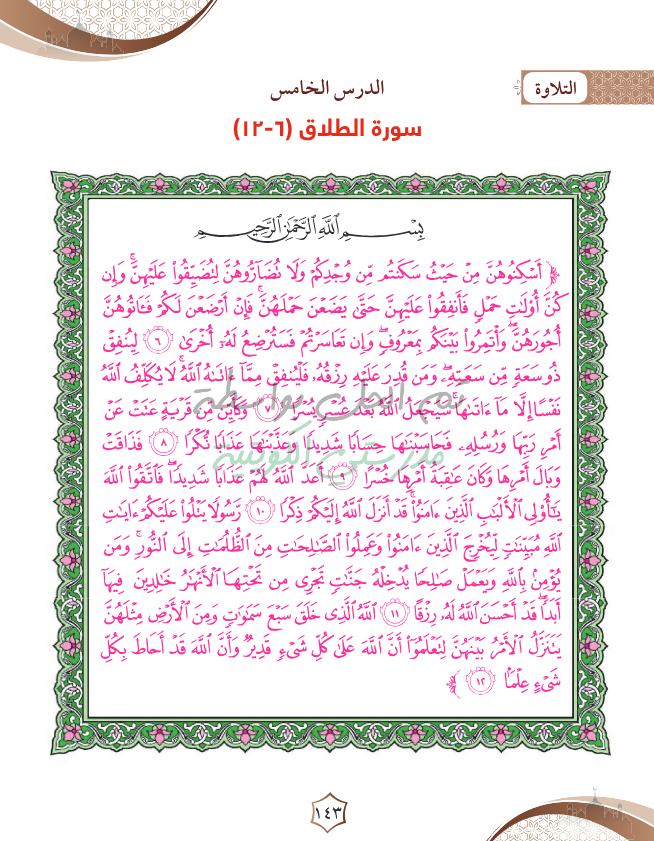 التلاوة
الدرس الخامس
سورة الطلاق (٦-١٢)
بِسْمِ اللَّهِ الرَّحْمَٰنِ الرَّحِيمِ
﴿ أَسْكِنُوهُنَّ مِنْ حَيْثُ سَكَنتُم مِّن وُجْدِكُمْ وَلَا تُضَارُّوهُنَّ لِتُضَيِّقُوا۟ عَلَيْهِنَّ ۚ وَإِن
كُنَّ أُو۟لَٰتِ حَمْلٍ فَأَنفِقُوا۟ عَلَيْهِنَّ حَتَّىٰ يَضَعْنَ حَمْلَهُنَّ ۚ فَإِنْ أَرْضَعْنَ لَكُمْ فَـَٔاتُوهُنَّ
أُجُورَهُنَّ ۖ وَأْتَمِرُوا۟ بَيْنَكُم بِمَعْرُوفٍ ۖ وَإِن تَعَاسَرْتُمْ فَسَتُرْضِعُ لَهُۥٓ أُخْرَىٰ ٦ لِيُنفِقْ
ذُو سَعَةٍ مِّن سَعَتِهِۦ ۖ وَمَن قُدِرَ عَلَيْهِ رِزْقُهُۥ فَلْيُنفِقْ مِمَّآ ءَاتَىٰهُ اللَّهُ ۚ لَا يُكَلِّفُ اللَّهُ
نَفْسًا إِلَّا مَآ ءَاتَىٰهَا ۚ سَيَجْعَلُ اللَّهُ بَعْدَ عُسْرٍ يُسْرًا ٧ وَكَأَيِّن مِّن قَرْيَةٍ عَتَتْ عَنْ
أَمْرِ رَبِّهَا وَرُسُلِهِۦ فَحَاسَبْنَٰهَا حِسَابًا شَدِيدًا وَعَذَّبْنَٰهَا عَذَابًا نُّكْرًا ٨ فَذَاقَتْ
وَبَالَ أَمْرِهَا وَكَانَ عَٰقِبَةُ أَمْرِهَا خُسْرًا ٩ أَعَدَّ اللَّهُ لَهُمْ عَذَابًا شَدِيدًا ۖ فَاتَّقُوا۟ اللَّهَ
يَٰٓأُو۟لِى الْأَلْبَٰبِ الَّذِينَ ءَامَنُوا۟ ۚ قَدْ أَنزَلَ اللَّهُ إِلَيْكُمْ ذِكْرًا ١٠ رَّسُولًا يَتْلُوا۟ عَلَيْكُمْ ءَايَٰتِ
اللَّهِ مُبَيِّنَٰتٍ لِّيُخْرِجَ الَّذِينَ ءَامَنُوا۟ وَعَمِلُوا۟ الصَّٰلِحَٰتِ مِنَ الظُّلُمَٰتِ إِلَى النُّورِ ۚ وَمَن
يُؤْمِنۢ بِاللَّهِ وَيَعْمَلْ صَٰلِحًا يُدْخِلْهُ جَنَّٰتٍ تَجْرِى مِن تَحْتِهَا الْأَنْهَٰرُ خَٰلِدِينَ فِيهَآ
أَبَدًا ۖ قَدْ أَحْسَنَ اللَّهُ لَهُۥ رِزْقًا ١١ اللَّهُ الَّذِى خَلَقَ سَبْعَ سَمَٰوَٰتٍ وَمِنَ الْأَرْضِ مِثْلَهُنَّ
يَتَنَزَّلُ الْأَمْرُ بَيْنَهُنَّ لِتَعْلَمُوٓا۟ أَنَّ اللَّهَ عَلَىٰ كُلِّ شَىْءٍ قَدِيرٌ وَأَنَّ اللَّهَ قَدْ أَحَاطَ بِكُلِّ
شَىْءٍ عِلْمًۢا ١٢ ﴾
تم الحل بواسطة
مدرستي الكويتية
١٤٣